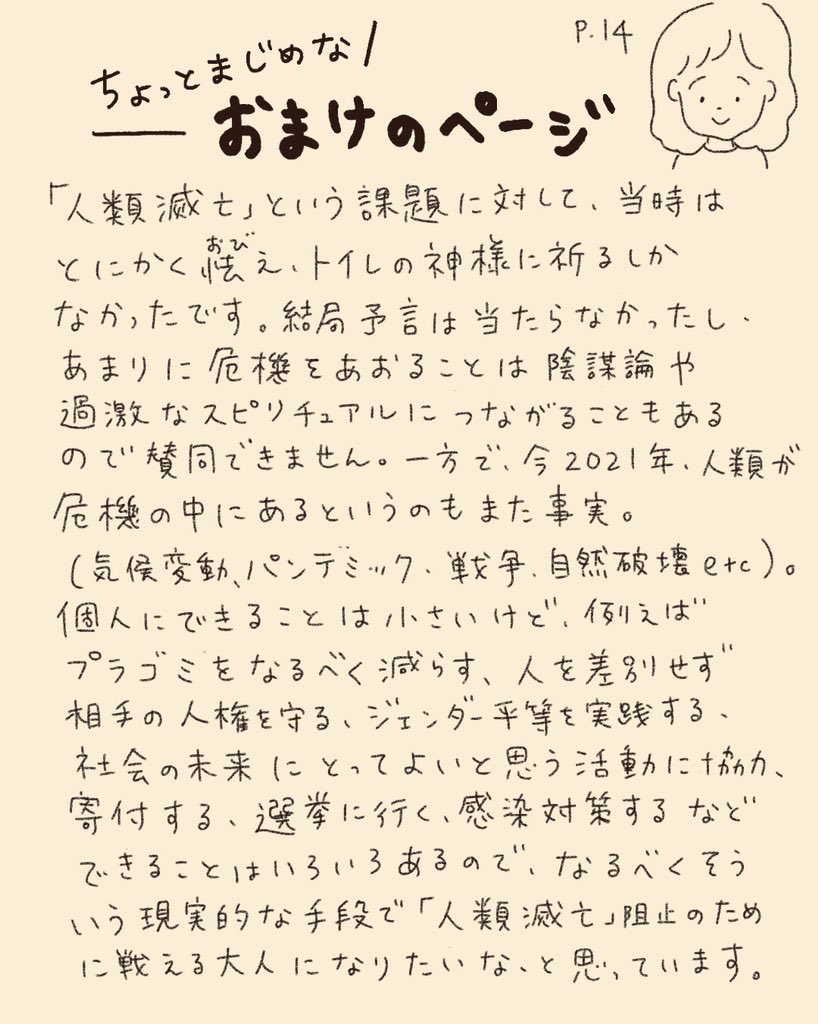 P.14
ちょっとまじめな/
おまけのページ
「人類滅亡」という課題に対して、当時は
とにかく怯え、トイレの神様に祈るしか
おび
なかったです。結局予言は当たらなかったし、
あまりに危機をあおることは陰謀論や
過激なスピリチュアルにつながることもある
ので賛同できません。一方で、今2021年、人類が
危機の中にあるというのもまた事実。
(気候変動、パンデミック、戦争、自然破壊etc)。
個人にできることは小さいけど、例えば
プラゴミをなるべく減らす、人を差別せず
相手の人権を守る、ジェンダー平等を実践する、
社会の未来にとってよいと思う活動に協力、
寄付する、選挙に行く、感染対策するなど
できることはいろいろあるので、なるべくそう
いう現実的な手段で「人類滅亡」阻止のため
に戦える大人になりたいな、と思っています。